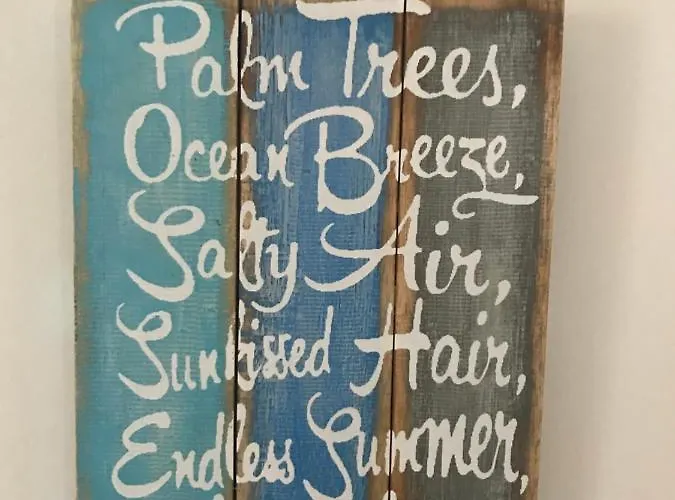 Palm Trees,
Ocean Breeze,
Salty Air,
Sunkissed Hair,
Endless Summer,